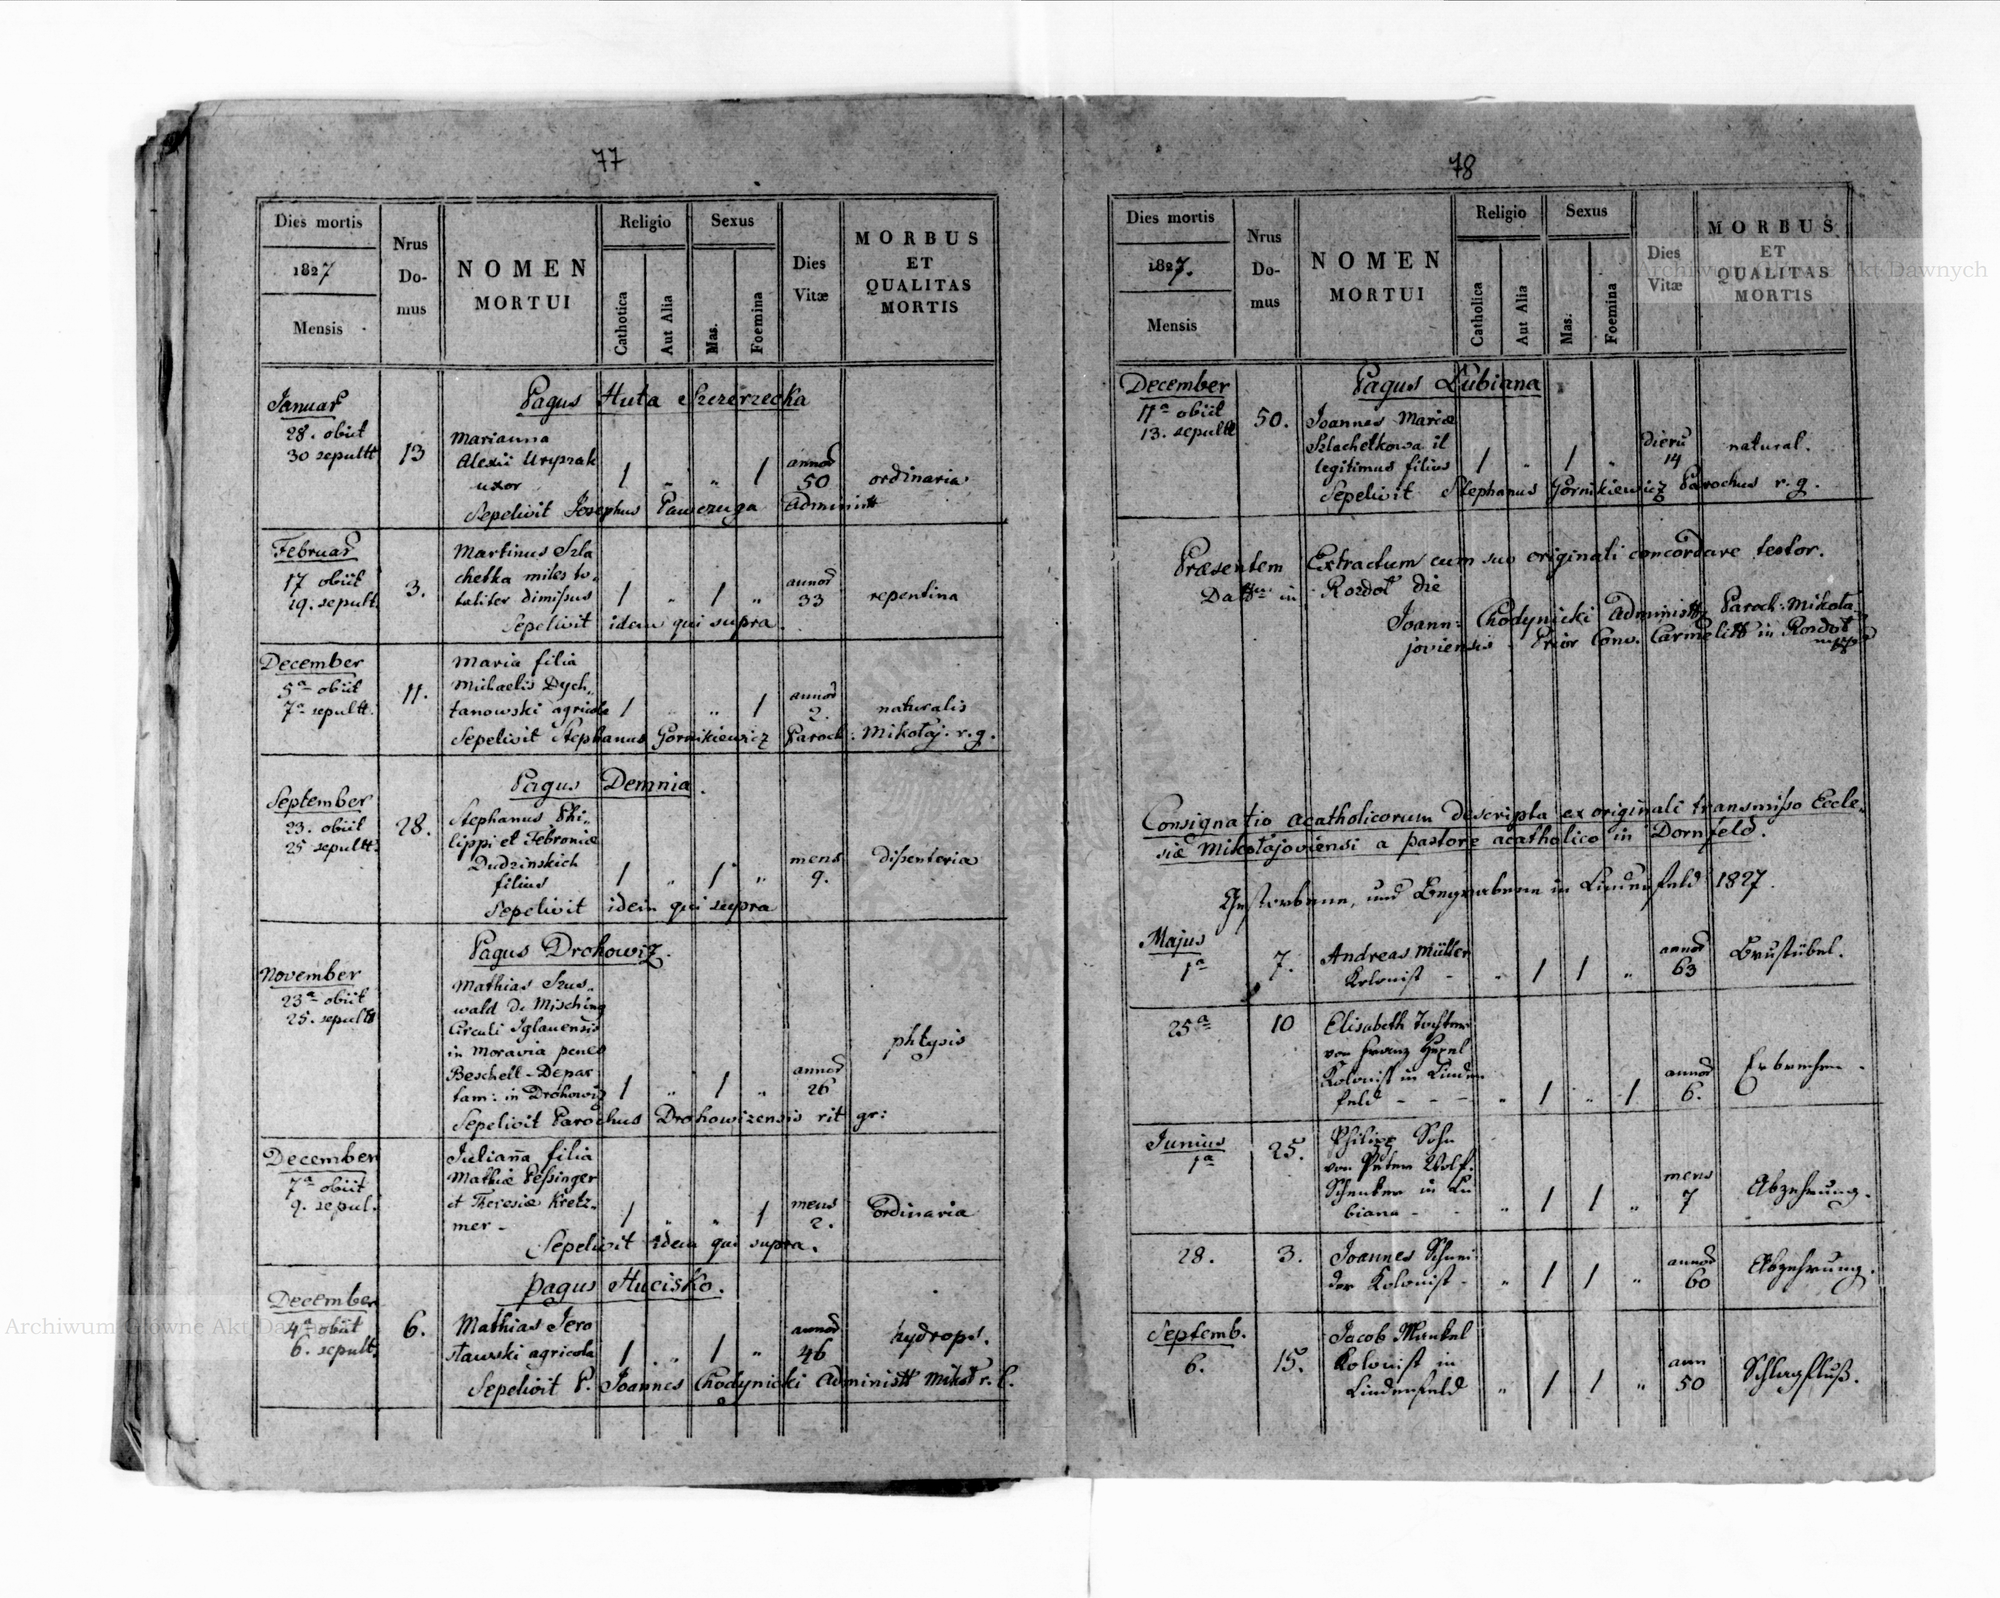 77
Dies mortis
1827
Mensis
Nrus Do- mus
NOMEN MORTUI
Religio
Cathotica
Aut Alia
Sexus
Mas.
Foemina
Dies Vitæ
MORBUS ET QUALITAS MORTIS
Pagus Huta Szczerzecka
Januar
28. obiit
30 sepult
13
Marianna
Alexii
uxor
1 " " 1
annor
50
ordinaria
Sepelivit Josephus Pawczuga Administ
Februar
17 obiit
19. sepult.
3.
Martinus Szla
chetka miles to„
taliter dimissus
1 " 1 "
annor
33
repentina
Sepelivit idem qui supra.
December
5a obiit
7a sepult.
11.
Maria filia
Michaelis Dych„
tanowski agricola
1 " " 1
annor
2.
naturalis
Sepelivit Stephanus Gornikiewicz Paroch: Mikołaj. r. g.
Pagus Demnia.
September
23. obiit
25 sepult.
28.
Stephanus Phi„
lippi et Febroniæ
Dudzinskich
filius
1 " 1 "
mens
9.
dissenteria
Sepelivit idem qui supra
Pagus Drohowiz.
November
23a obiit
25. sepult
Mathias Szus„
wald De Misching
Circuli Iglauensis
in Moravia penes
Beschell-Depar
tam: in Drohowiz
1 " 1 "
annor
26
phtysis
Sepelivit Parochus Drohowizensis rit gr:
December
7a obiit
9. sepul.
Julianna filia
Mathiæ Pessinger
et Theresiæ Kretz„
mer -
1 " " 1
mens
2.
Ordinaria
Sepelivit idem qui supra.
Pagus Hucisko.
December
4a obiit
6. sepult.
6.
Mathias Jero
sławski agricola
1 " 1 "
annor
46
hydrops.
Sepelivit P. Joannes Chodynicki Administ Mikoł r. l.
78
Dies mortis
1827.
Mensis
Nrus Do- mus
NOMEN MORTUI
Religio
Catholica
Aut Alia
Sexus
Mas.
Foemina
Dies Vitæ
MORBUS ET QUALITAS MORTIS
Pagus Lubiana
December
11a obiit
13. sepult
50.
Joannes Mariæ
Szlachetkowa il
legitimus filius
1 " 1 "
dieru
14
natural.
Sepelivit Stephanus Gornikiewicz Parochus r. g.
Præsentem Extractum cum suo originali concordare testor.
Datt in Rozdoł die
Joann: Chodynicki Administ Paroch: Mikoła
joviensis Prior Conv. Carmelitt in Rozdoł
Consignatio acatholicorum descripta ex originali transmisso Eccle„
siæ Mikołajoviensi a pastore acatholico in Dornfeld.
Gestorbene, und Begrabene in Lindenfeld 1827.
Majus
1a
7.
Andreas Müller
Kolonist -
" 1 1 "
annor
63
Brustübel.
25a
10
Elisabeth Tochter
von Franz
Kolonist in Linden
feld - - -
" 1 " 1
annor
6.
Erbrechen -
Junius
1a
25.
Philipp Sohn
von Peter Wolf.
Schenker in Lu
biana - -
" 1 1 "
mens
7
Abzehrung.
28.
3.
Joannes Schnei
der Kolonist -
" 1 1 "
annor
60
Abzehrung.
Septemb.
6.
15.
Jacob Manbel
Kolonist in
Lindenfeld
" 1 1 "
ann
50
Schlagfluß.
Archiwum Główne Akt Dawnych
Archiwum Główne Akt Dawnych